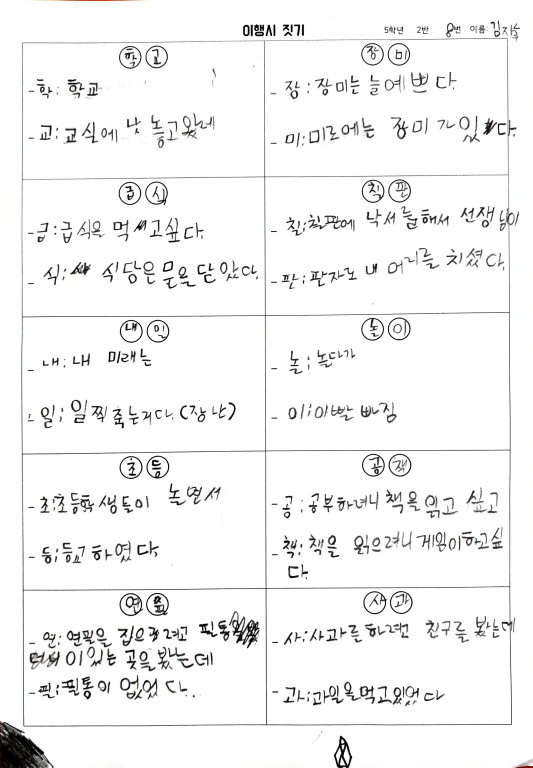 이행시 짓기
5학년 2반 8번 이름: 김지
학교
- 학: 학교
- 교: 교실에 낫 놓고 왔네
장미
- 장: 장미는 늘 예쁘다.
- 미: 미로에는 장미가 있다.
급식
- 급: 급식을 먹고싶다.
- 식: 식당은 문을 닫았다.
칠판
- 칠: 칠판에 낙서를 해서 선생님이
- 판: 판자로 내 머리를 치셨다.
내일
- 내: 내 미래는
- 일; 일찍 죽는거다. (장난)
놀이
- 놀; 놀다가
- 이; 이빨 빠짐
초등
- 초: 초등학생들이 놀면서
- 등; 등교하였다.
공책
- 공; 공부하려니 책을 읽고 싶고
- 책; 책을 읽으려니 게임이 하고싶
다.
연필
- 연: 연필을 집으려고 필통
이 있는 곳을 봤는데
- 필; 필통이 없었다.
사과
- 사: 사과를 하려고 친구를 봤는데
- 과; 과일을 먹고있었다